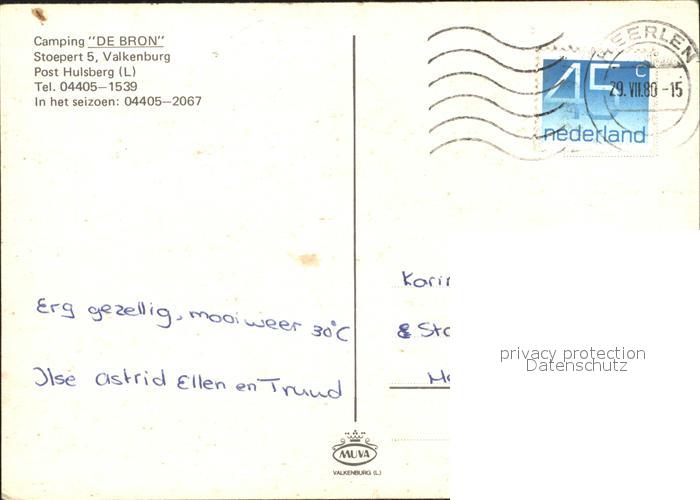 Camping "DE BRON"
Stoepert 5, Valkenburg
Post Hulsberg (L)
Tel. 04405-1539
In het seizoen: 04405-2067
HEERLEN
45 c
29.VII.80-15
nederland
Erg gezellig, mooi weer 30°C
Ilse astrid Ellen en Truud
Karin
& Sta
privacy protection
Datenschutz
MUVA
VALKENBURG (L.)